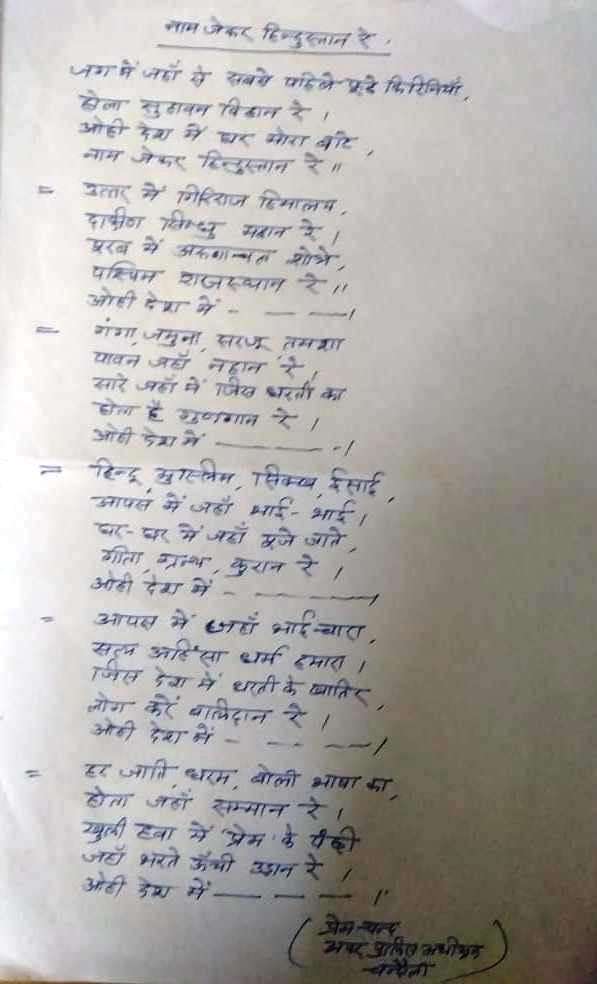 नाम जेकर हिन्दुस्तान रे ।
जग में जहाँ से सबसे पहिले फूटे किरिनियाँ,
होला सुहावन बिहान रे ।
ओही देश में घर मोरा बाटे,
नाम जेकर हिन्दुस्तान रे ॥
= उत्तर में गिरिराज हिमालय,
दक्षिण सिन्धु महान रे ।
पूरब में अरुणाचल शोभे,
पश्चिम राजस्थान रे ॥
ओही देश में - — — —।
= गंगा, जमुना, सरजू, तमशा
पावन जहाँ नहान रे,
सारे जहाँ में जिस धरती का
होता है गुणगान रे ।
ओही देश में ———— - ।
= हिन्दू, मुस्लिम, सिक्ख, ईसाई,
आपस में जहाँ भाई-भाई ।
घर-घर में जहाँ पूजे जाते,
गीता, ग्रन्थ, कुरान रे ।
ओही देश में - — ———।
= आपस में जहाँ भाई-चारा,
सत्य अहिंसा धर्म हमारा ।
जिस देश में धरती के खातिर,
लोग करें बालिदान रे ।
ओही देश में - — - — —।
= हर जाति, धरम, बोली भाषा का,
होता जहाँ सम्मान रे ।
खुली हवा में 'प्रेम' के पंछी
जहाँ भरते ऊँची उड़ान रे ,
ओही देश में — — — — ।'
( प्रेम चन्द
अपर पुलिस अधीक्षक )
चन्दौली